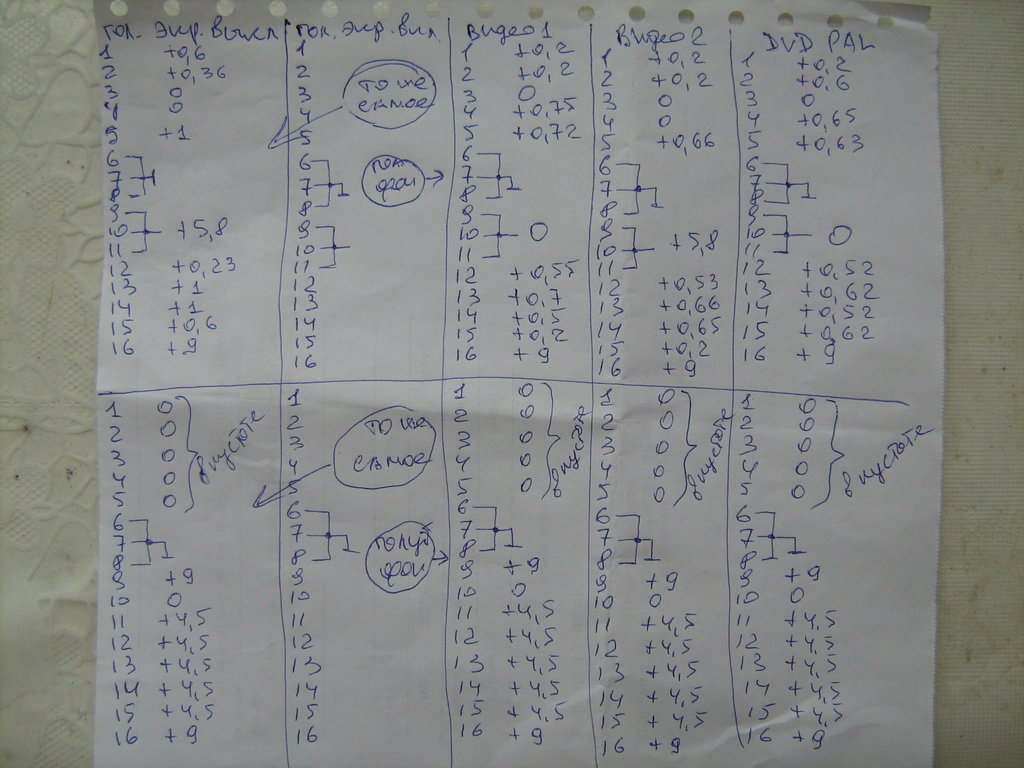 гол. экр. выкл
1 +0,6
2 +0,36
3 0
4 0
5 +1
6
7
8
9
10 +5,8
11
12 +0,23
13 +1
14 +1
15 +0,6
16 +9
гол. экр. вкл.
1
2
3
4
5
6
7
8
9
10
11
12
13
14
15
16
то же
самое
гол.
фон
Видео 1
1 +0,2
2 +0,2
3 0
4 +0,75
5 +0,72
6
7
8
9
10 0
11
12 +0,55
13 +0,7
14 +0,5
15 +0,2
16 +9
Видео 2
1 +0,2
2 +0,2
3 0
4 0
5 +0,66
6
7
8
9
10 +5,8
11
12 +0,53
13 +0,66
14 +0,65
15 +0,2
16 +9
DVD PAL
1 +0,2
2 +0,6
3 0
4 +0,65
5 +0,63
6
7
8
9
10 0
11
12 +0,52
13 +0,62
14 +0,52
15 +0,62
16 +9
1 0
2 0
3 0
4 0
5 0
в пустоте
6
7
8
9 +9
10 0
11 +4,5
12 +4,5
13 +4,5
14 +4,5
15 +4,5
16 +9
1
2
3
4
5
6
7
8
9
10
11
12
13
14
15
16
то же
самое
голуб
фон
1 0
2 0
3 0
4 0
5 0
в пустоте
6
7
8
9 +9
10 0
11 +4,5
12 +4,5
13 +4,5
14 +4,5
15 +4,5
16 +9
1 0
2 0
3 0
4 0
5 0
в пустоте
6
7
8
9 +9
10 0
11 +4,5
12 +4,5
13 +4,5
14 +4,5
15 +4,5
16 +9
1 0
2 0
3 0
4 0
5 0
в пустоте
6
7
8
9 +9
10 0
11 +4,5
12 +4,5
13 +4,5
14 +4,5
15 +4,5
16 +9